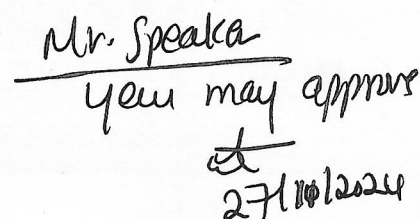 Mr. Speaker
You may approve
27/10/2024